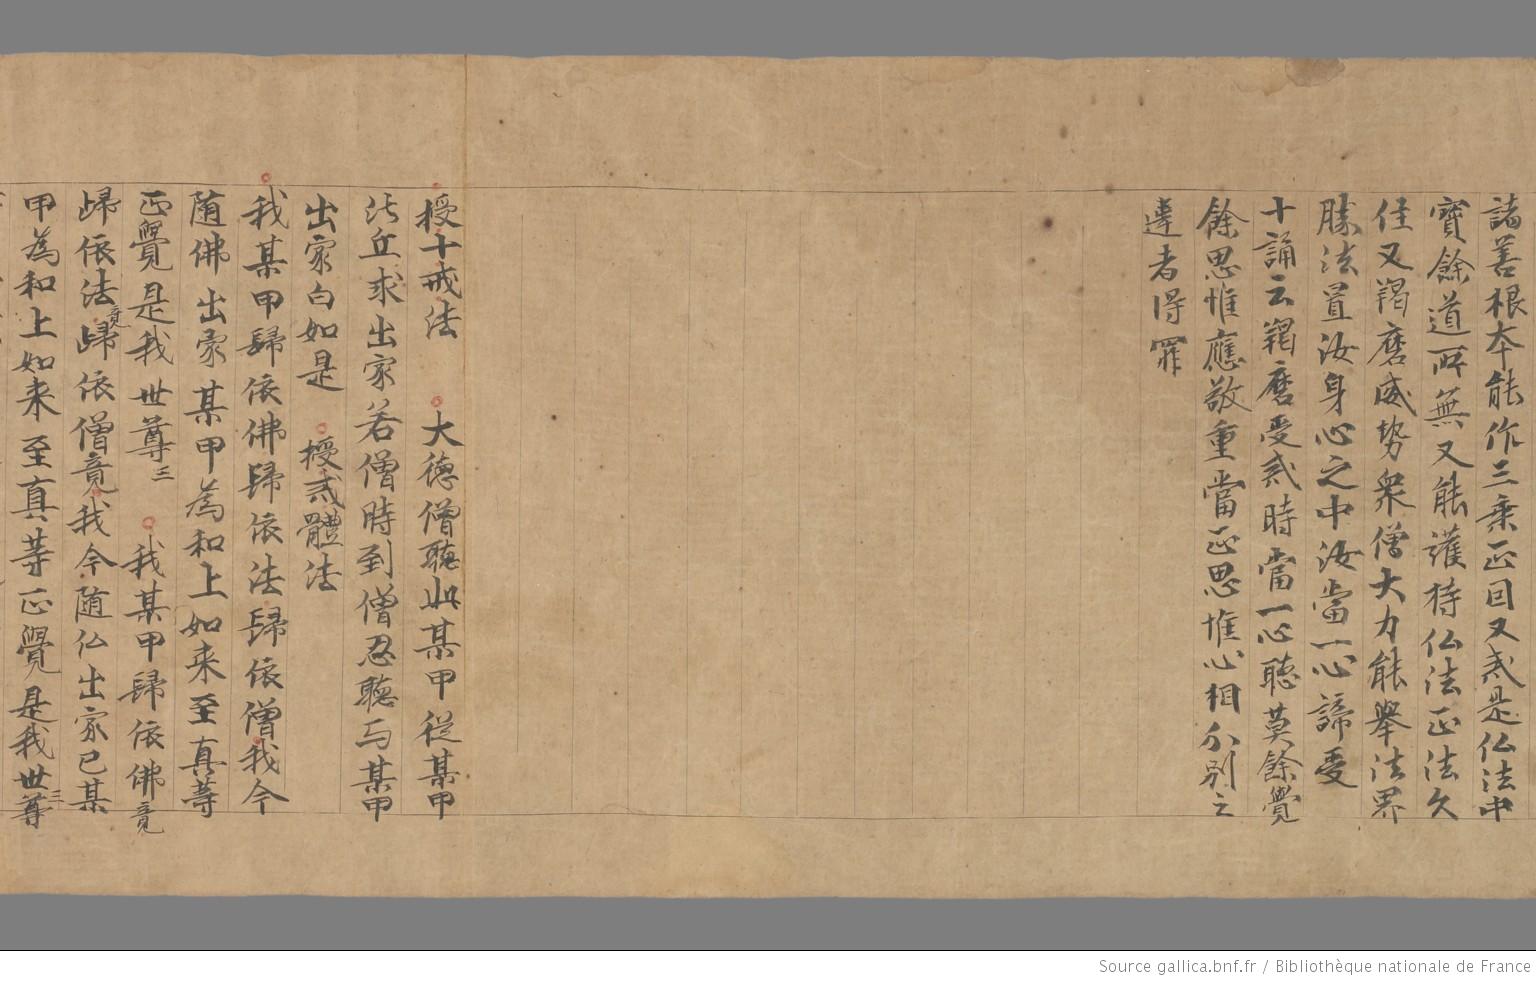 諸善根本能作三乘正因又戒是仏法中
寳餘道所無又能護持仏法正法久
住又羯磨威勢衆僧大力能舉法界
勝法置汝身心之中汝當一心諦受
十誦云羯磨受戒時當一心聽莫餘覺
餘思惟應敬重當正思惟心相分別之
違者得罪
授十戒法　大德僧聽此某甲從某甲
比丘求出家若僧時到僧忍聽与某甲
出家白如是　授戒體法
我某甲歸依佛歸依法歸依僧我今
随佛出家某甲為和上如来至真等
正覺是我世尊三　我某甲歸依佛竟
歸依法竟歸依僧竟我今随仏出家已某
甲為和上如来至真等正覺是我世尊三
Source gallica.bnf.fr / Bibliothèque nationale de France